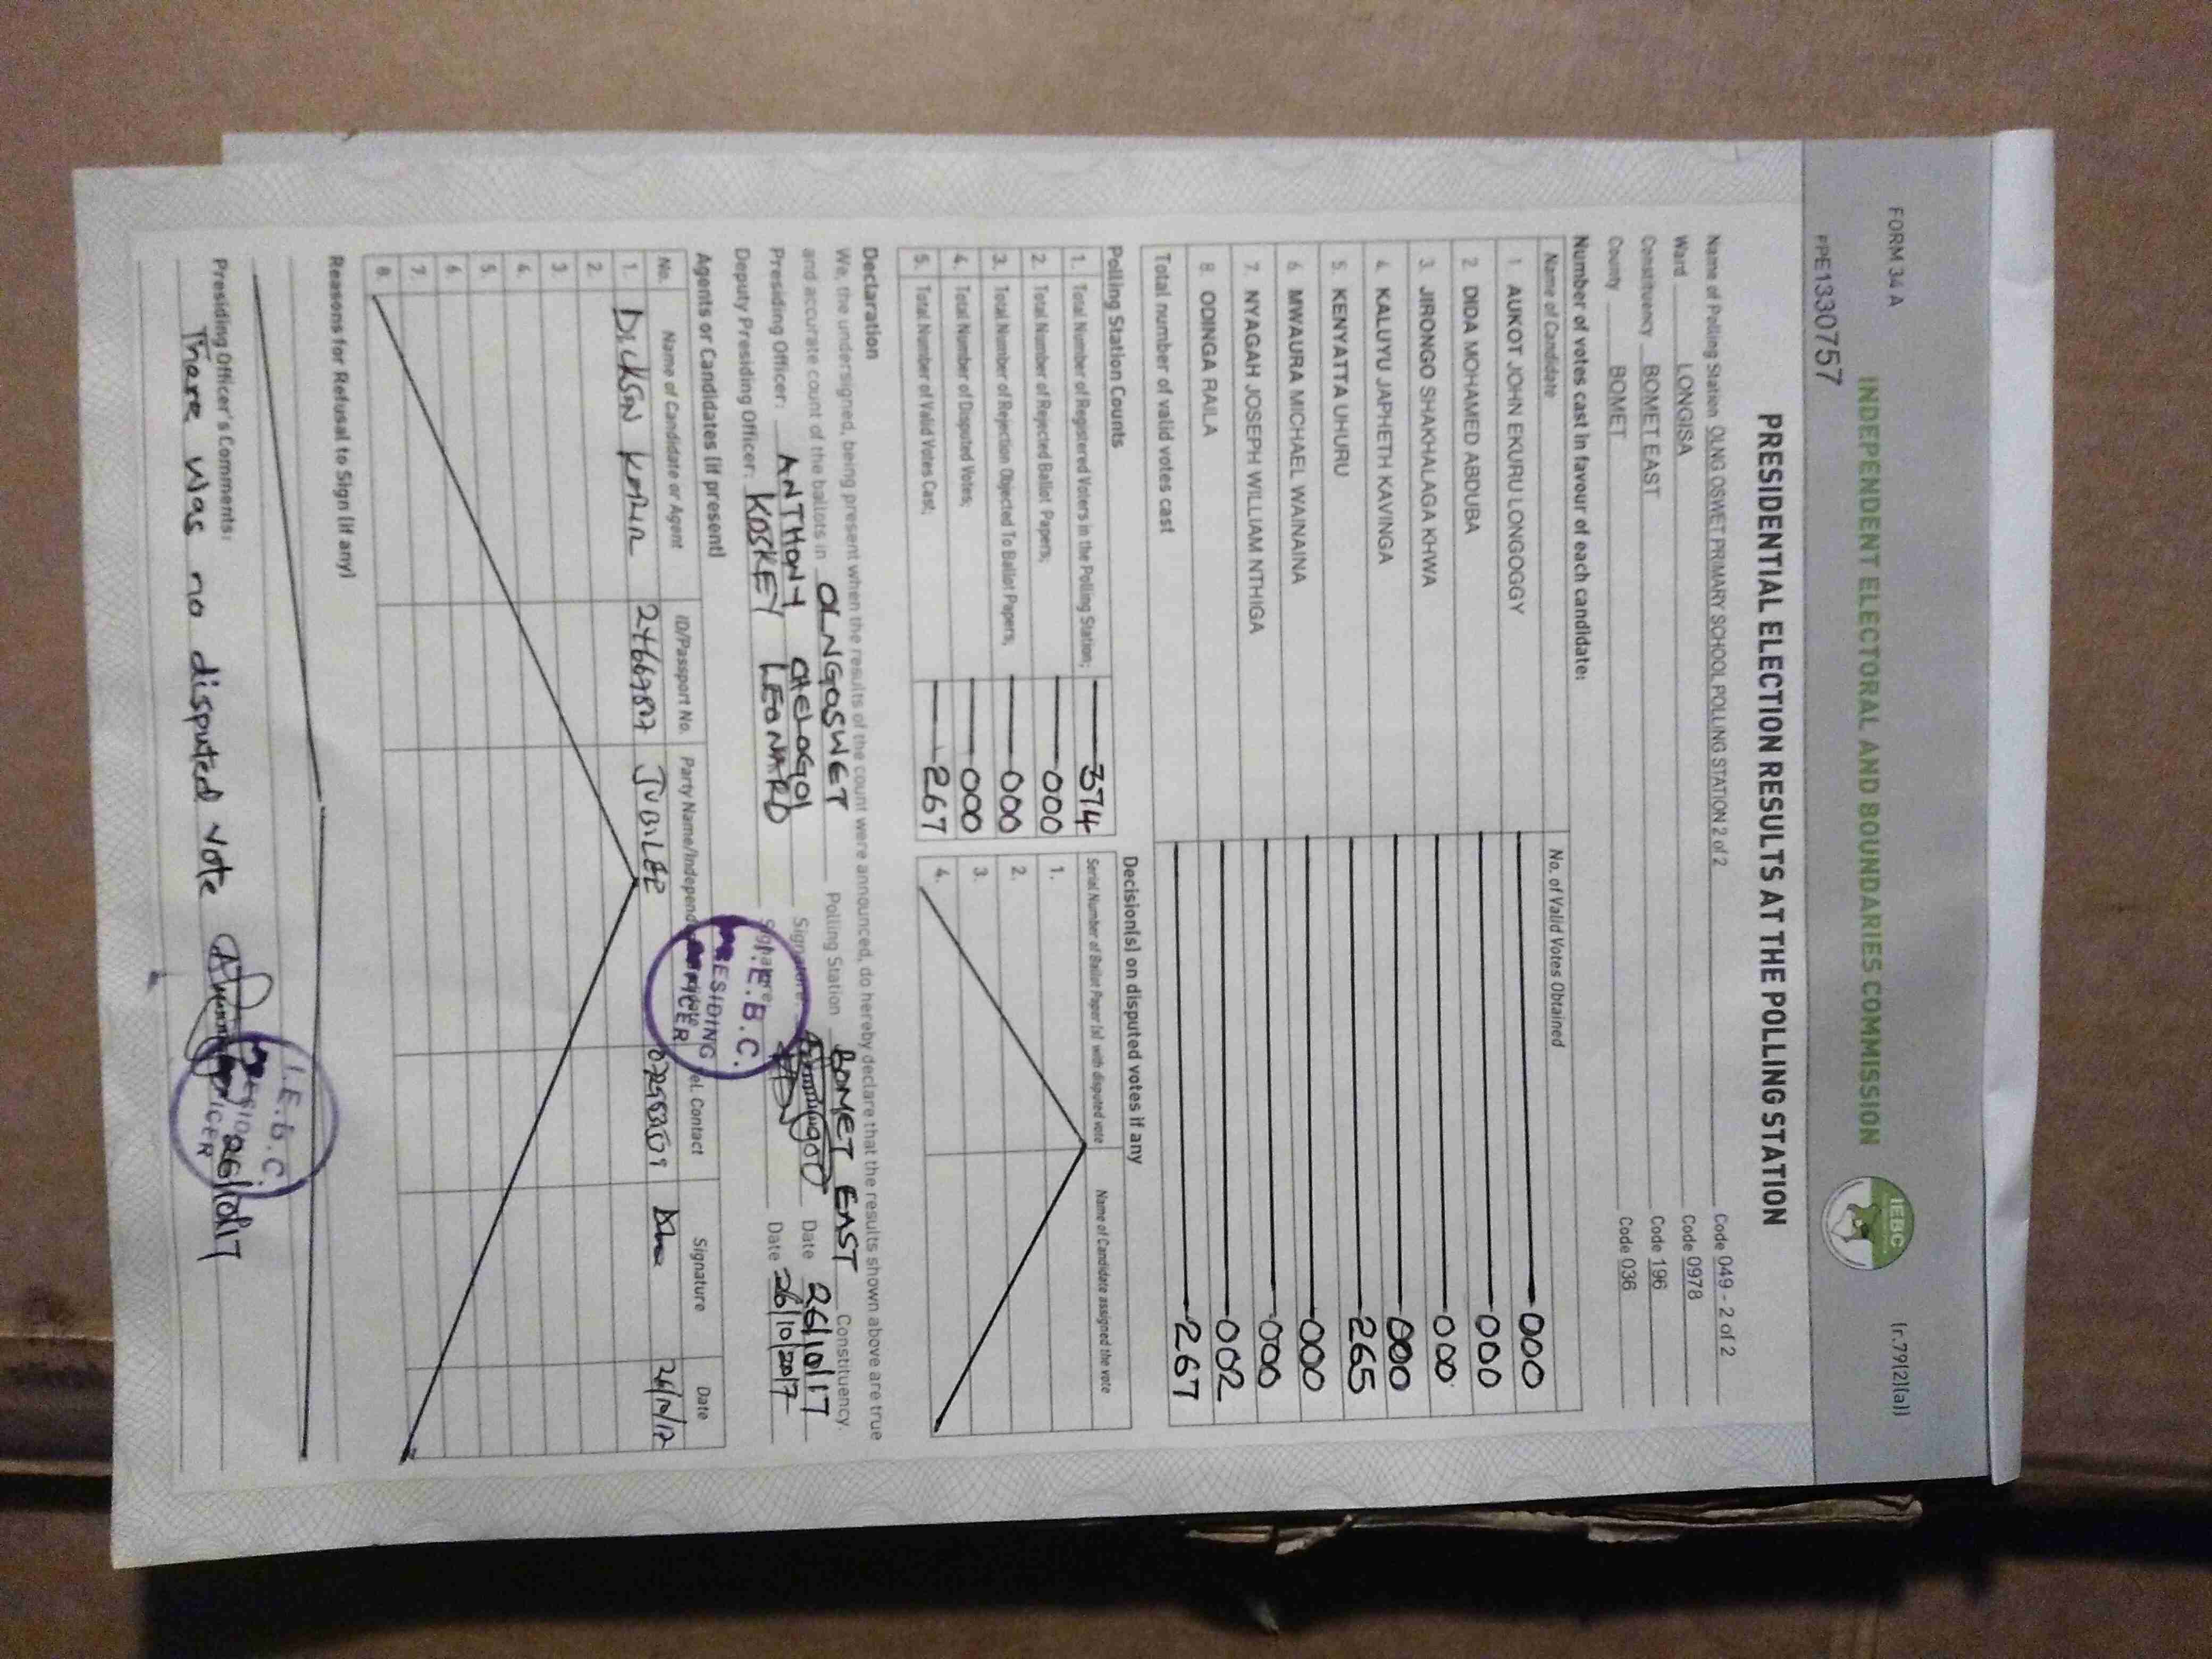 FORM 34 A
(r.79(2)(a))
INDEPENDENT ELECTORAL AND BOUNDARIES COMMISSION
IEBC
PPE1330757
PRESIDENTIAL ELECTION RESULTS AT THE POLLING STATION
Name of Polling Station OLNG OSWET PRIMARY SCHOOL POLLING STATION 2 of 2 Code 049 - 2 of 2
Ward LONGISA Code 0978
Constituency BOMET EAST Code 196
County BOMET Code 036
Number of votes cast in favour of each candidate:
Name of Candidate No. of Valid Votes Obtained
1. AUKOT JOHN EKURU LONGOGGY 000
2. DIDA MOHAMED ABDUBA 000
3. JIRONGO SHAKHALAGA KHWA 000
4. KALUYU JAPHETH KAVINGA 000
5. KENYATTA UHURU 265
6. MWAURA MICHAEL WAINAINA 000
7. NYAGAH JOSEPH WILLIAM NTHIGA 000
8. ODINGA RAILA 002
Total number of valid votes cast 267
Polling Station Counts
1. Total Number of Registered Voters in the Polling Station; 374
2. Total Number of Rejected Ballot Papers; 000
3. Total Number of Rejection Objected To Ballot Papers; 000
4. Total Number of Disputed Votes; 000
5. Total Number of Valid Votes Cast; 267
Decision(s) on disputed votes if any
Serial Number of Ballot Paper (s) with disputed vote Name of Candidate assigned the vote
1.
2.
3.
4.
Declaration
We, the undersigned, being present when the results of the count were announced, do hereby declare that the results shown above are true
and accurate count of the ballots in OLNGOSWET Polling Station BOMET EAST Constituency.
Presiding Officer: ANTHONY CHELOGOI Signature: Date 26/10/17
Deputy Presiding Officer: KOSKEY LEONARD Signature: Date 26/10/2017
I.E.B.C.
PRESIDING
OFFICER
Agents or Candidates (if present)
No. Name of Candidate or Agent ID/Passport No. Party Name/Independent Candidate Tel. Contact Signature Date
1. DICKSON JUBILEE 26/10/17
2.
3.
4.
5.
6.
7.
8.
Reasons for Refusal to Sign (if any)
Presiding Officer's Comments:
There was no disputed vote 26/10/17
I.E.B.C.
OFFICER